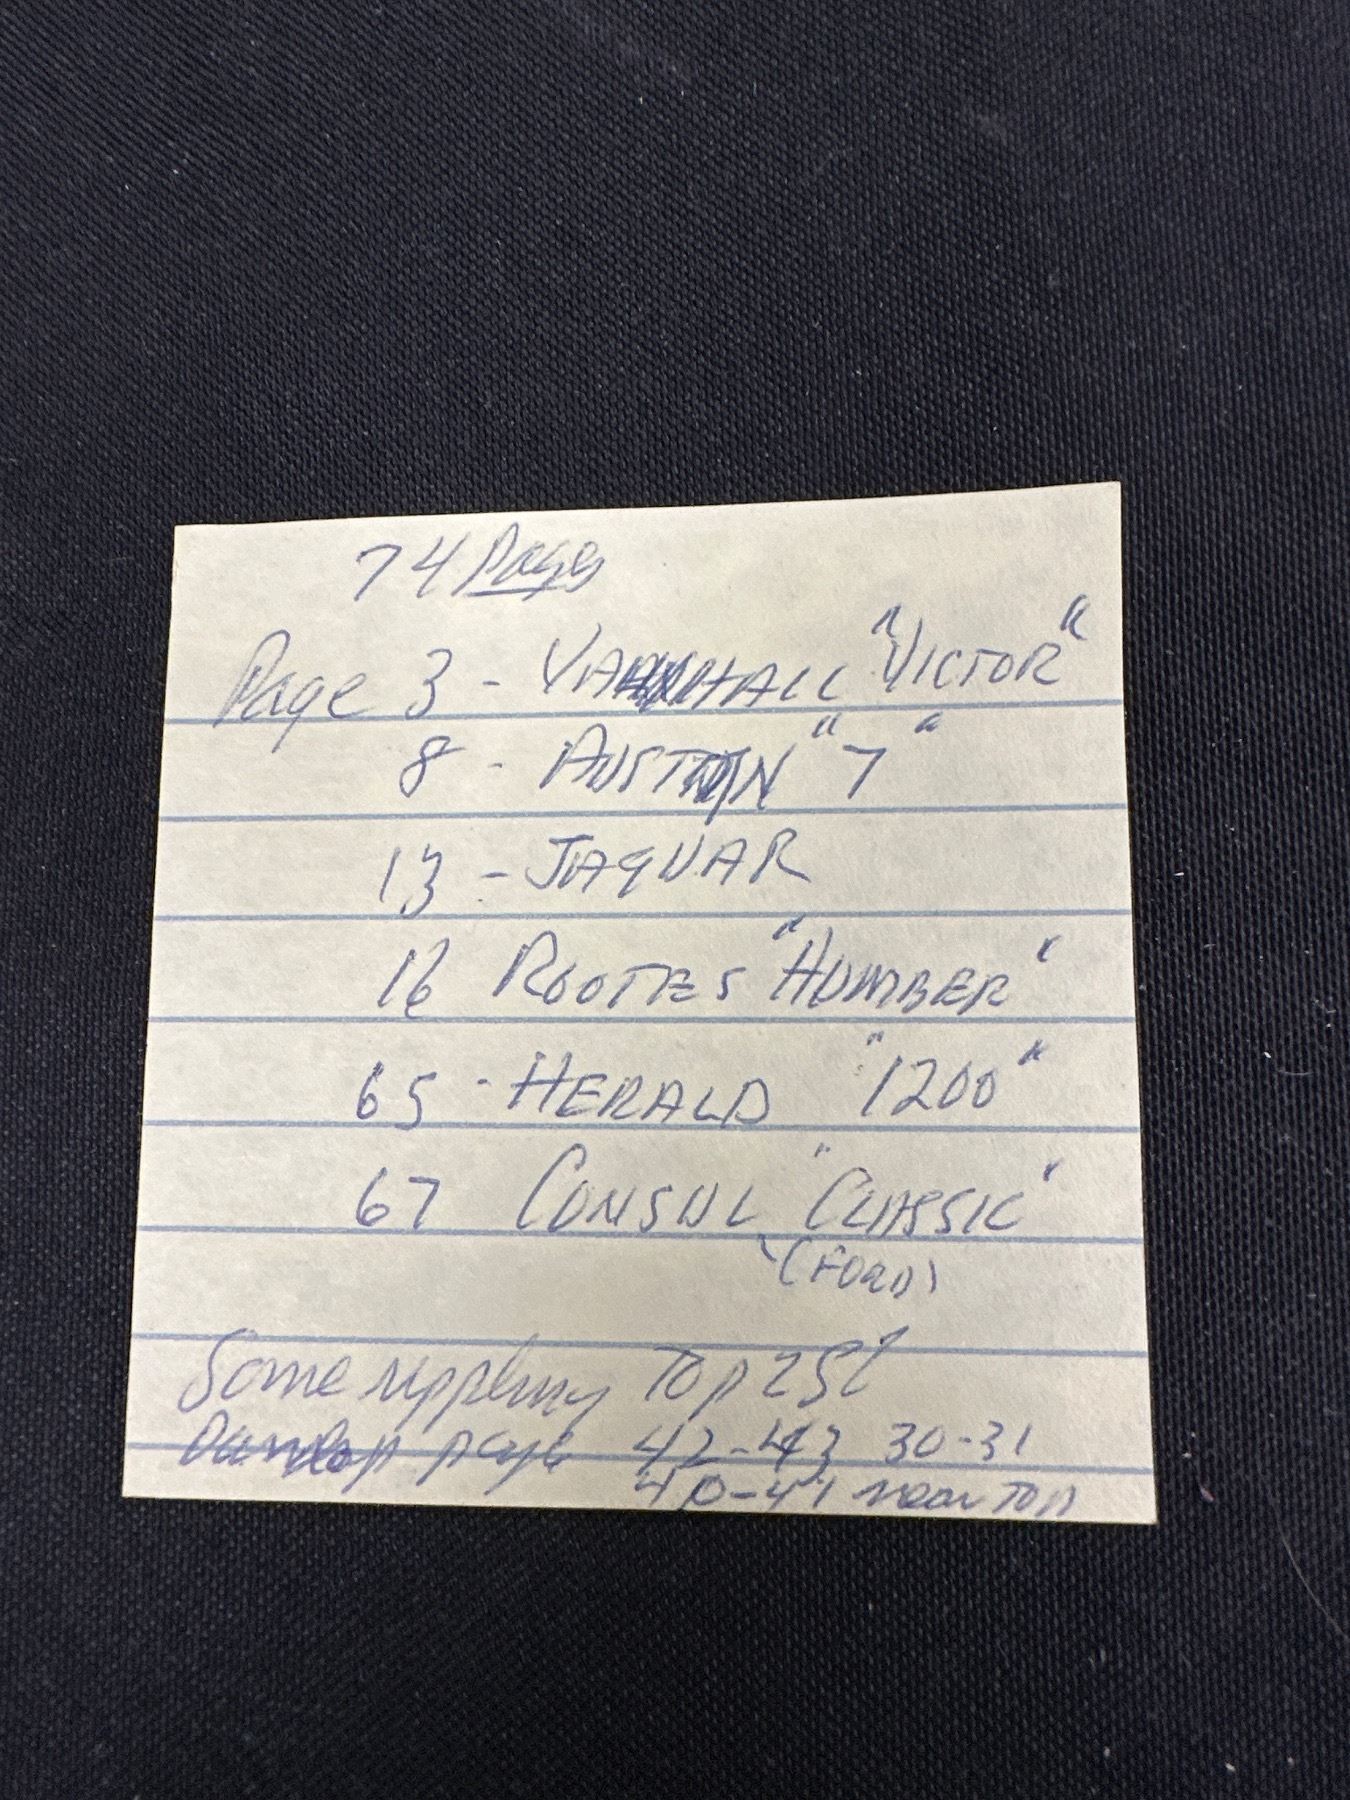 74 Pages
Page 3 - VAUXHALL "VICTOR"
8 - AUSTIN "7"
13 - JAGUAR
16 ROOTES "HUMBER"
65 - HERALD "1200"
67 CONSUL "CLASSIC"
(FORD)
Some rippling Top 25%
Dunlop page 42-43 30-31
40-41 near Top